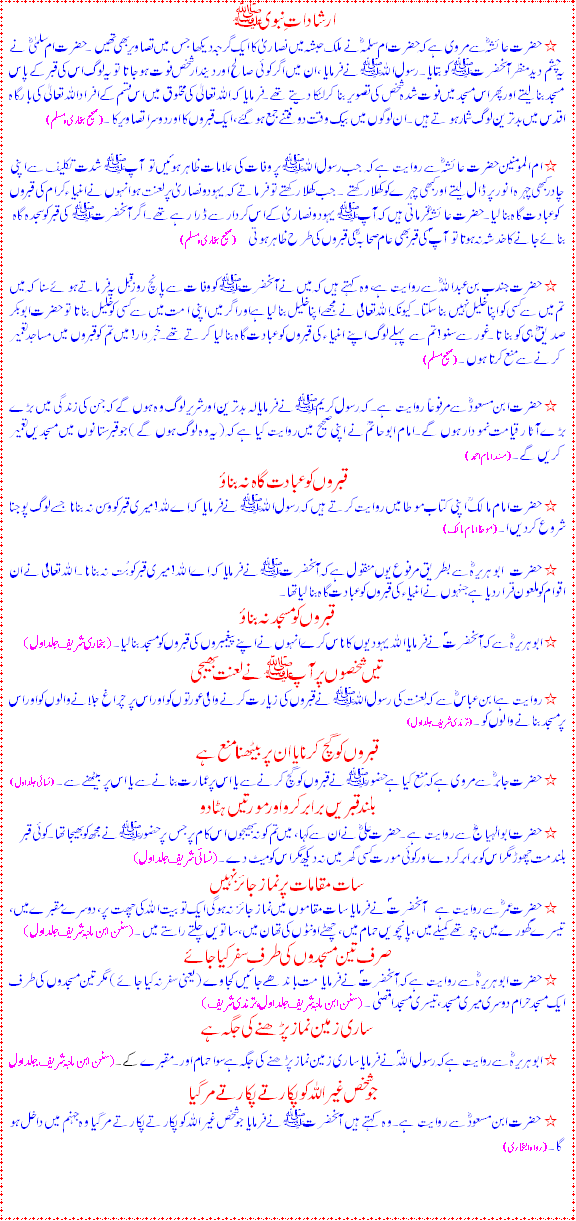 ارشادات نبوی ﷺ
☆ حضرت عائشہؓ سے مروی ہے کہ حضرت ام سلمہؓ نے ملک حبشہ میں نصاریٰ کا ایک گرجہ دیکھا جس میں تصاویر بھی تھیں۔ حضرت ام سلمیٰؓ نے
یہ چشم دید منظر آنحضرت ﷺ کو بتایا۔ رسول اللہ ﷺ نے فرمایا، ان میں اگر کوئی صالح اور دیندار شخص فوت ہو جاتا تو یہ لوگ اس کی قبر کے پاس
مسجد بنا لیتے اور پھر اس مسجد میں فوت شدہ شخص کی تصویر بنا کر لٹکا دیتے تھے۔ فرمایا کہ اللہ تعالیٰ کی مخلوق میں اس قسم کے افراد اللہ تعالیٰ کی بارگاہ
اقدس میں بدترین لوگ شمار ہوتے ہیں۔ ان لوگوں میں بیک وقت دو فتنے جمع ہو گئے، ایک قبروں کا اور دوسرا تصاویر کا۔ (صحیح بخاری و مسلم)
☆ ام المومنین حضرت عائشہؓ سے روایت ہے کہ جب رسول اللہ ﷺ پر وفات کی علامات ظاہر ہوئیں تو آپ ﷺ شدت تکلیف سے اپنی
چادر کبھی چہرہ انور پر ڈال لیتے اور کبھی چہرے کو کھلا رکھتے۔ جب کھلا رکھتے تو فرماتے کہ یہود و نصاریٰ پر لعنت ہو انہوں نے انبیاء کرام کی قبروں
کو عبادت گاہ بنا لیا۔ حضرت عائشہؓ فرماتی ہیں کہ آپ ﷺ یہود و نصاریٰ کے اس کردار سے ڈرا رہے تھے۔ اگر آنحضرت ﷺ کی قبر کو سجدہ گاہ
بنائے جانے کا خدشہ نہ ہوتا تو آپؐ کی قبر بھی عام صحابہؓ کی قبروں کی طرح ظاہر ہوتی (صحیح بخاری و مسلم)
☆ حضرت جندب بن عبداللہؓ سے روایت ہے، وہ کہتے ہیں کہ میں نے آنحضرت ﷺ کو وفات سے پانچ روز قبل یہ فرماتے ہوئے سنا کہ میں
تم میں سے کسی کو اپنا خلیل نہیں بنا سکتا۔ کیونکہ اللہ تعالیٰ نے مجھے اپنا خلیل بنا لیا ہے اور اگر میں اپنی امت میں سے کسی کو خلیل بناتا تو حضرت ابوبکر
صدیقؓ ہی کو بناتا۔ غور سے سنو! تم سے پہلے لوگ اپنے انبیاء کی قبروں کو عبادت گاہ بنا لیا کرتے تھے۔ خبردار! میں تم کو قبروں میں مساجد تعمیر
کرنے سے منع کرتا ہوں۔ (صحیح مسلم)
☆ حضرت ابن مسعودؓ سے مرفوعاً روایت ہے۔ کہ رسول کریم ﷺ نے فرمایا کہ بدترین اور شریر لوگ وہ ہوں گے کہ جن کی زندگی میں بڑے
بڑے آثار قیامت نمودار ہوں گے۔ امام ابو حاتمؒ نے اپنی صحیح میں روایت کیا ہے کہ (یہ وہ لوگ ہوں گے) جو قبرستانوں میں مسجدیں تعمیر
کریں گے۔ (مسند امام احمد)
قبروں کو عبادت گاہ نہ بناؤ
☆ حضرت امام مالکؒ اپنی کتاب موطا میں روایت کرتے ہیں کہ رسول اللہ ﷺ نے فرمایا کہ اے اللہ! میری قبر کو وثن نہ بنانا جسے لوگ پوجنا
شروع کر دیں۔ (موطا امام مالک)
☆ حضرت ابو ہریرہؓ سے بطریق مرفوع یوں منقول ہے کہ آنحضرت ﷺ نے فرمایا کہ اے اللہ! میری قبر کو بت نہ بنانا۔ اللہ تعالیٰ نے ان
اقوام کو ملعون قرار دیا ہے جنہوں نے انبیاء کی قبروں کو عبادت گاہ بنا لیا تھا۔
قبروں کو مسجد نہ بناؤ
☆ ابو ہریرہؓ سے کہ آنحضرتؐ نے فرمایا اللہ یہودیوں کا ناس کرے انہوں نے اپنے پیغمبروں کی قبروں کو مسجد بنا لیا۔ (بخاری شریف جلد اول)
تین شخصوں پر آپ ﷺ نے لعنت بھیجی
☆ روایت ہے ابن عباسؓ سے کہ لعنت کی رسول اللہ ﷺ نے قبروں کی زیارت کرنے والی عورتوں کو اور اس پر چراغ جلانے والوں کو اور اس
پر مسجد بنانے والوں کو۔ (ترمذی شریف جلد اول)
قبروں کو گچ کرنا یا ان پر بیٹھنا منع ہے
☆ حضرت جابرؓ سے مروی ہے کہ منع کیا ہے حضور ﷺ نے قبروں کو گچ کرنے سے یا اس پر عمارت بنانے سے یا اس پر بیٹھنے سے۔ (نسائی جلد اول)
بلند قبریں برابر کرو اور مورتیں ہٹا دو
☆ حضرت ابو الہیاجؓ سے روایت ہے۔ حضرت علیؓ نے ان سے کہا، میں تم کو نہ بھیجوں اس کام پر جس پر حضور ﷺ نے مجھ کو بھیجا تھا۔ کوئی قبر
بلند مت چھوڑ مگر اس کو برابر کر دے اور کوئی مورت کسی گھر میں نہ دیکھ مگر اس کو میٹ دے۔ (نسائی شریف جلد اول)
سات مقامات پر نماز جائز نہیں
☆ حضرت عمرؓ سے روایت ہے آنحضرتؐ نے فرمایا سات مقاموں میں نماز جائز نہ ہوگی ایک تو بیت اللہ کی چھت پر، دوسرے مقبرے میں،
تیسرے گھورے میں، چوتھے کمیلے میں، پانچویں حمام میں، چھٹے اونٹوں کی تھان میں، ساتویں چلتے راستے میں۔ (سنن ابن ماجہ شریف جلد اول)
صرف تین مسجدوں کی طرف سفر کیا جائے
☆ حضرت ابو ہریرہؓ سے روایت ہے کہ آنحضرتؐ نے فرمایا مت باندھے جائیں کجاوے (یعنی سفر نہ کیا جائے) مگر تین مسجدوں کی طرف
ایک مسجد حرام دوسری میری مسجد، تیسری مسجد اقصیٰ۔ (سنن ابن ماجہ شریف جلد اول، ترمذی شریف)
ساری زمین نماز پڑھنے کی جگہ ہے
☆ ابو ہریرہؓ سے روایت ہے کہ رسول اللہؐ نے فرمایا ساری زمین نماز پڑھنے کی جگہ ہے سوا حمام اور۔ مقبرے کے۔ (سنن ابن ماجہ شریف جلد اول)
جو شخص غیر اللہ کو پکارتے پکارتے مر گیا
☆ حضرت ابن مسعودؓ سے روایت ہے۔ وہ کہتے ہیں آنحضرت ﷺ نے فرمایا جو شخص غیر اللہ کو پکارتے پکارتے مر گیا وہ جہنم میں داخل ہو
گا۔ (رواہ بخاری)